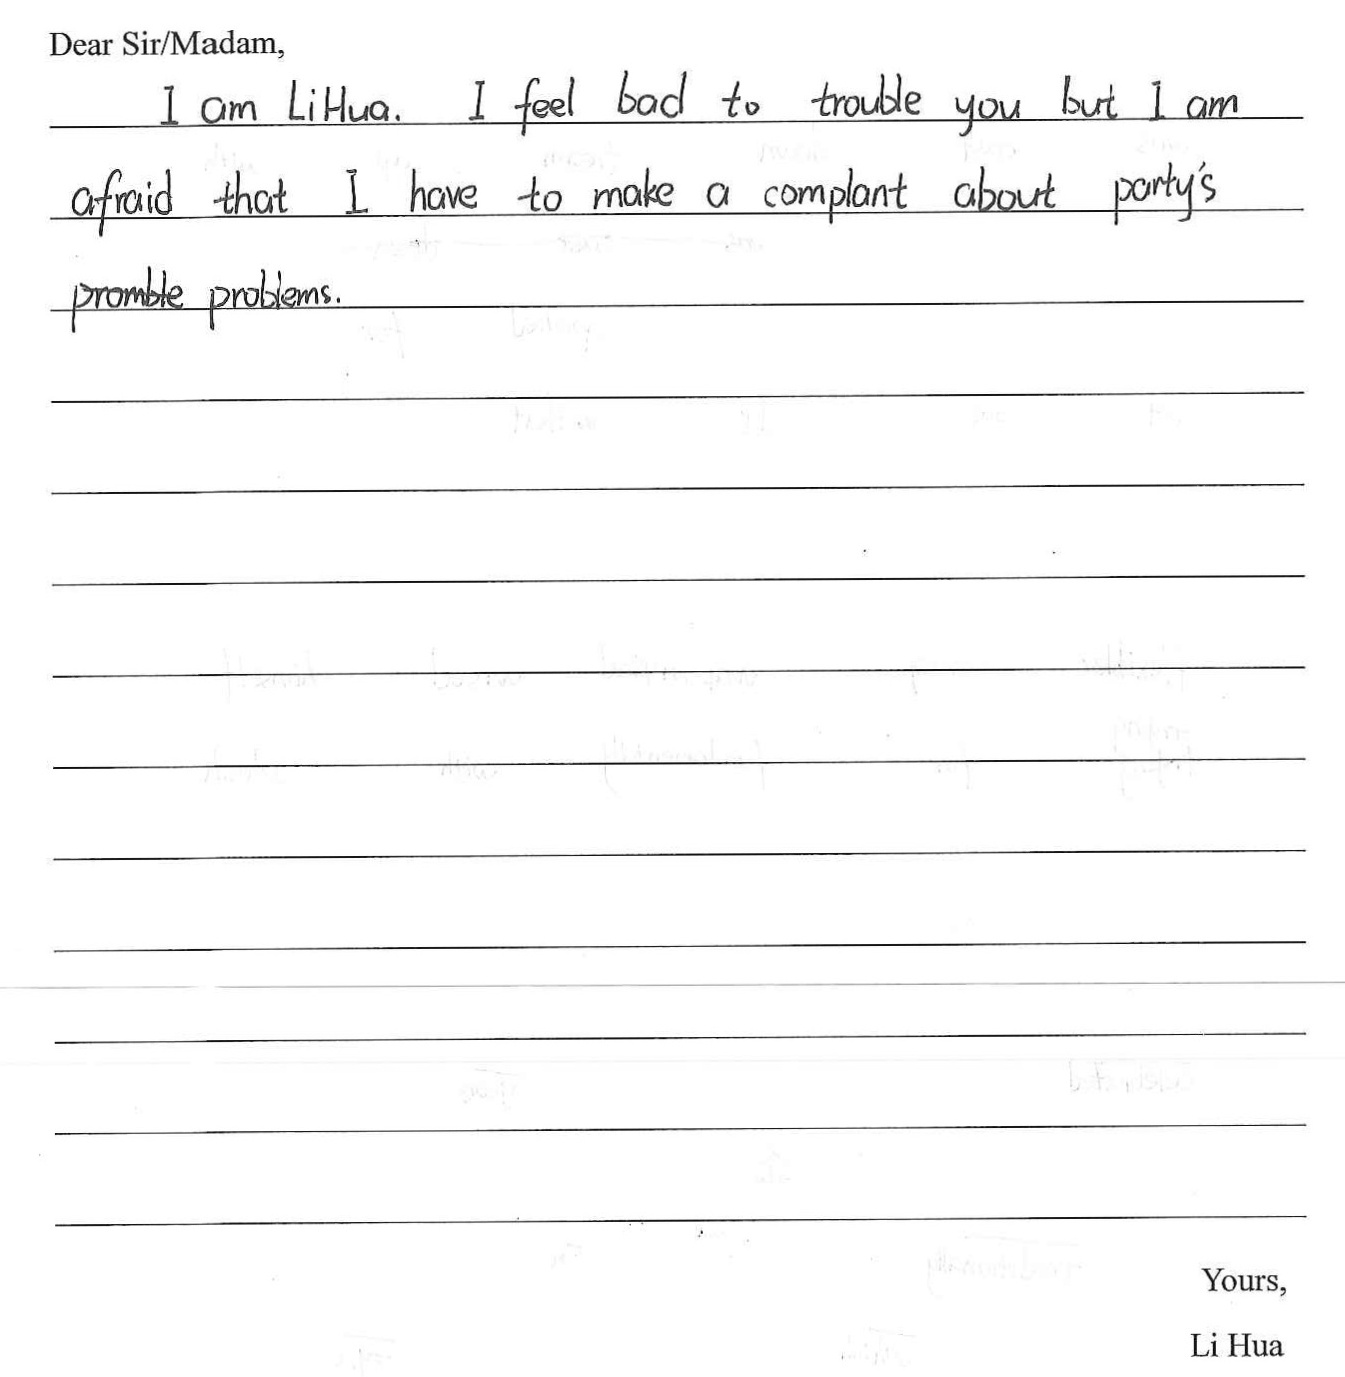 Dear Sir/Madam,
I am LiHua. I feel bad to trouble you but I am
afraid that I have to make a complant about party's
promble problems.
Yours,
Li Hua